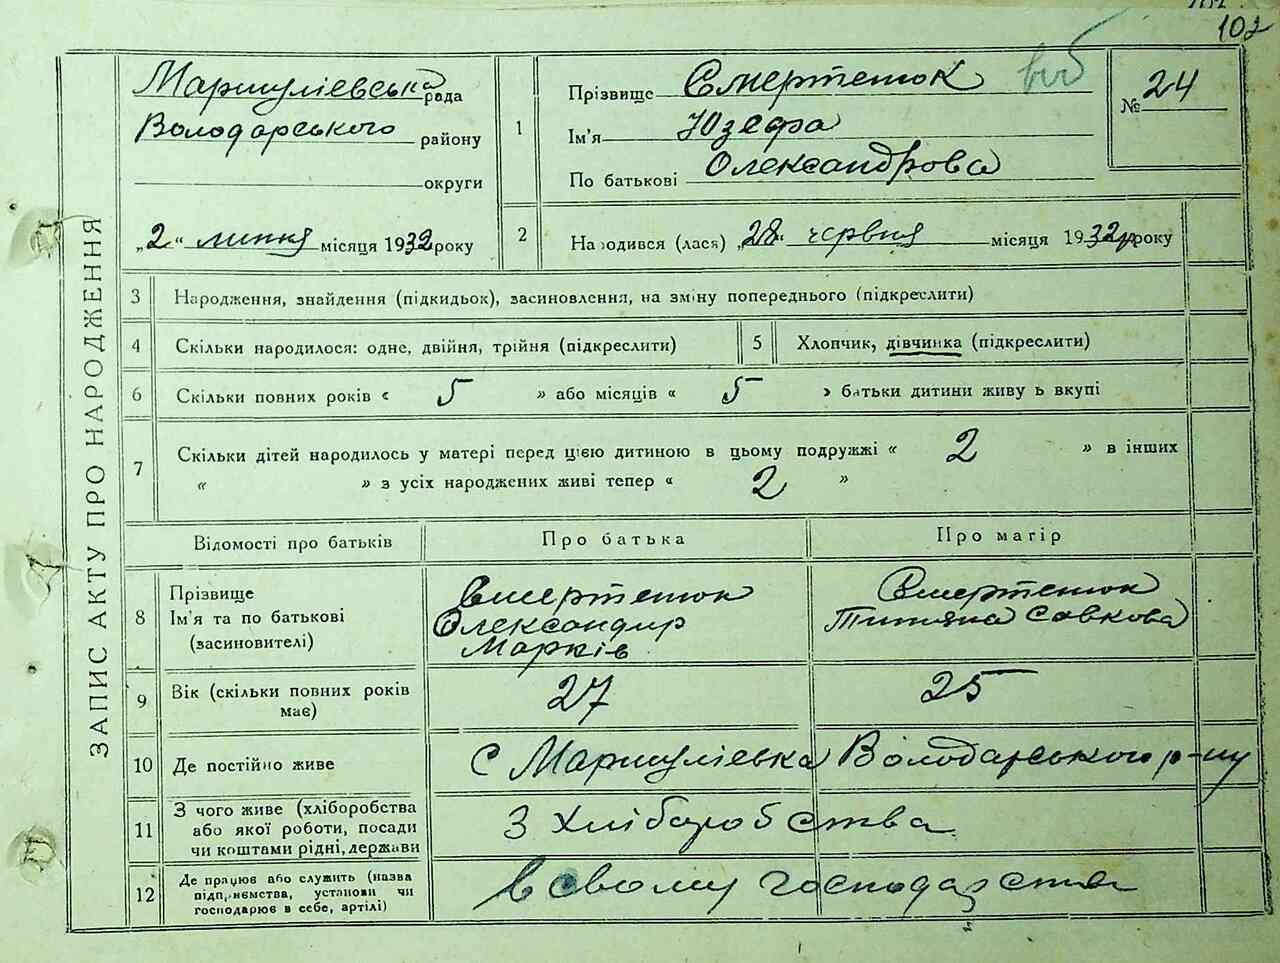 102
Мартулієвська рада
Володарського району
округи
„2“ липня місяця 1932 року
ЗАПИС АКТУ ПРО НАРОДЖЕННЯ
1 Прізвище Смертенюк
Ім'я Юзефа
По батькові Олександрова
№ 24
2 Народився (лася) „28“ червня місяця 1932 р року
3 Народження, знайдення (підкидьок), засиновлення, на зміну попереднього (підкреслити)
4 Скільки народилося: одне, двійня, трійня (підкреслити) 5 Хлопчик, дівчинка (підкреслити)
6 Скільки повних років « 5 » або місяців « 5 » батьки дитини живуть вкупі
7 Скільки дітей народилось у матері перед цією дитиною в цьому подружжі « 2 » в інших
« » з усіх народжених живі тепер « 2 »
Відомості про батьків Про батька Про матір
8 Прізвище
Ім'я та по батькові
(засиновителі)
Смертенюк
Олександир
Марків
Смертенюк
Титяна Савкова
9 Вік (скільки повних років
має)
27 25
10 Де постійно живе с Мартулієвка Володарського р-ну
11 З чого живе (хліборобства
або якої роботи, посади
чи коштами рідні, держави
З Хліборобства
12 Де працює або служить (назва
підприємства, установи чи
господарює в себе, артілі)
в свому господарстві